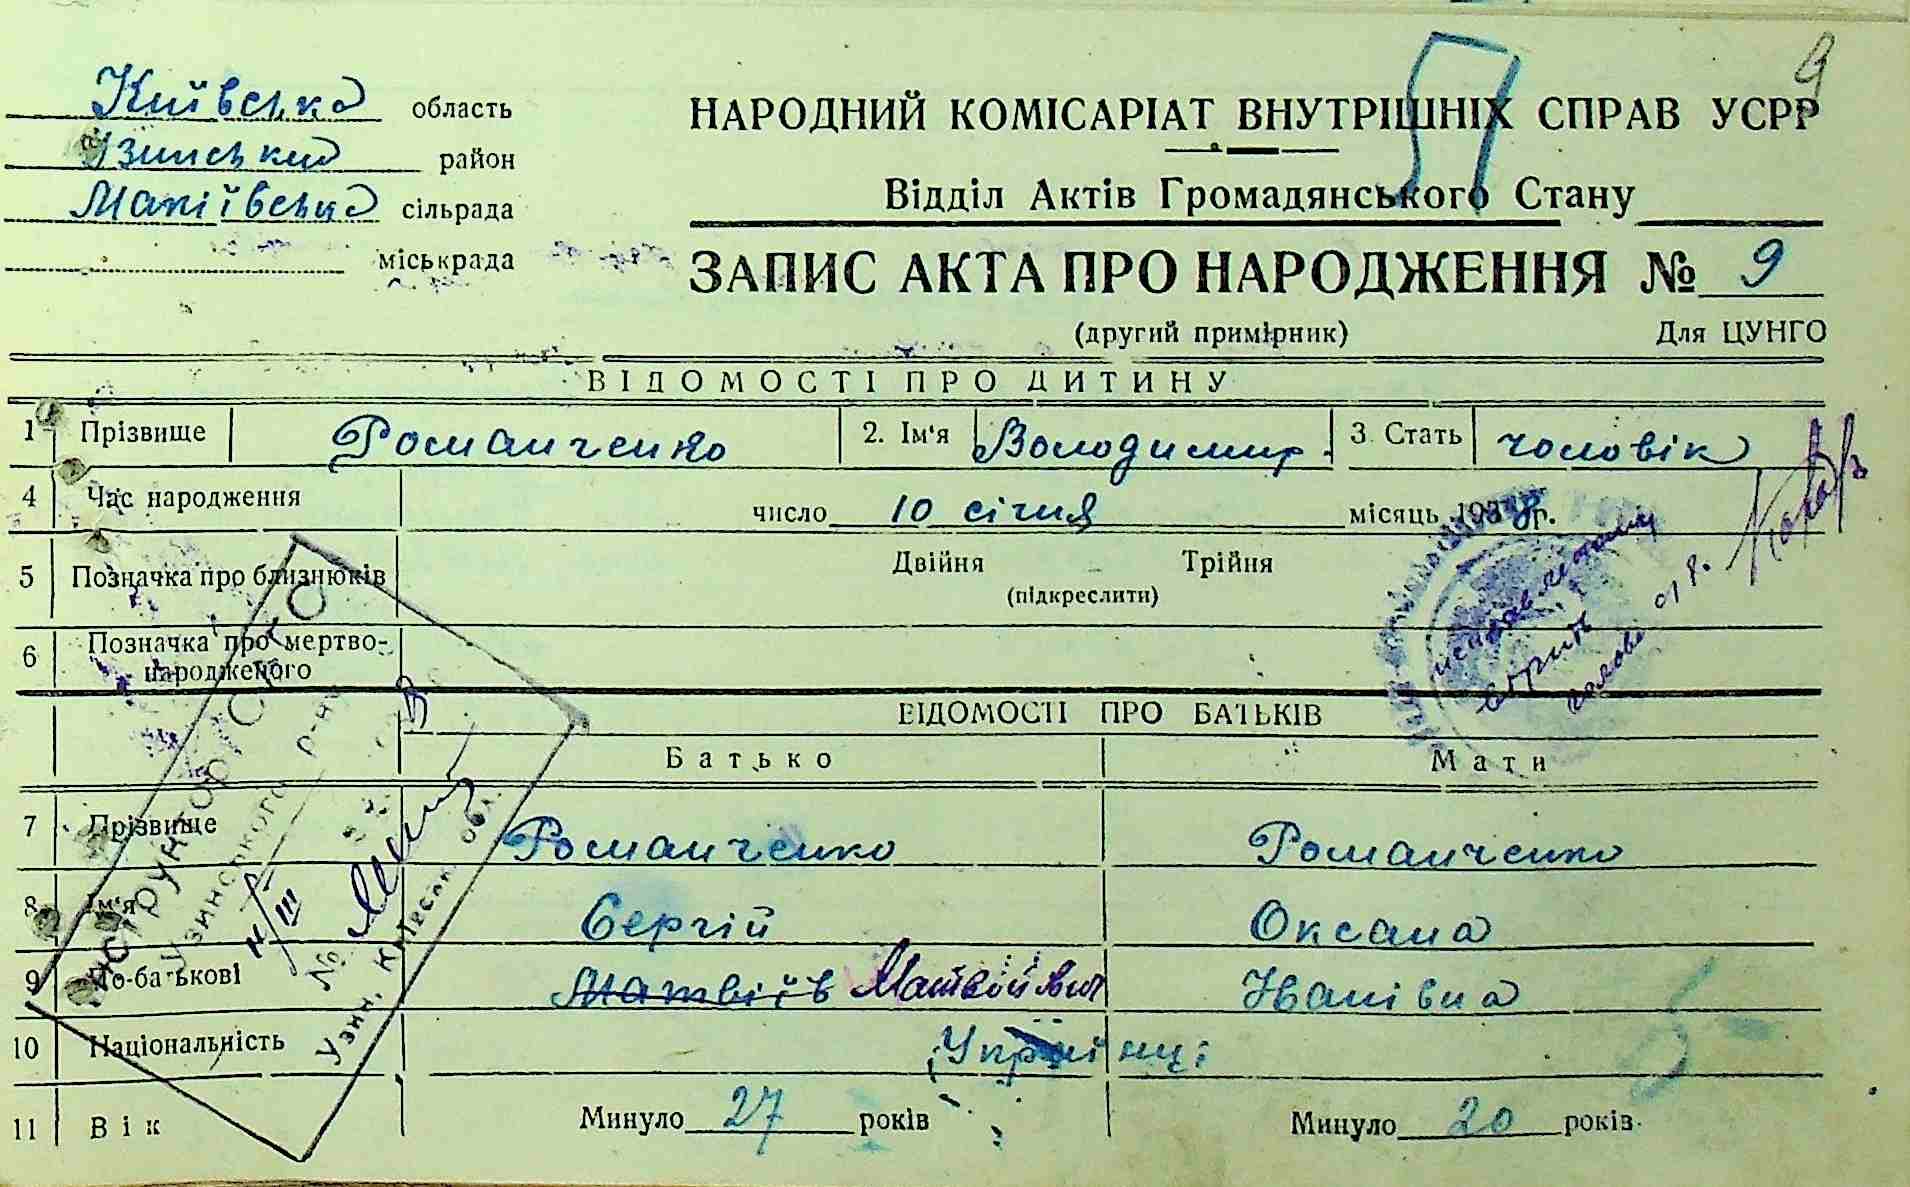 9
Київська область
Узинський район
Макіївська сільрада
міськрада
НАРОДНИЙ КОМІСАРІАТ ВНУТРІШНІХ СПРАВ УСРР
Відділ Актів Громадянського Стану
ЗАПИС АКТА ПРО НАРОДЖЕННЯ № 9
(другий примірник) Для ЦУНГО
ВІДОМОСТІ ПРО ДИТИНУ
1 Прізвище Романченко 2. Ім'я Володимир 3. Стать чоловік
4 Час народження число 10 січня місяць 1938 р.
5 Позначка про близнюків Двійня Трійня
(підкреслити)
6 Позначка про мертво-
народженого
ВІДОМОСТІ ПРО БАТЬКІВ
Батько Мати
7 Прізвище Романченко Романченко
8 Ім'я Сергій Оксана
9 По-батькові Матвіїв Матвійович Іванівна
10 Національність Українці
11 Вік Минуло 27 років Минуло 20 років
Узинського р-ну
№
Узин, Київськ. обл.